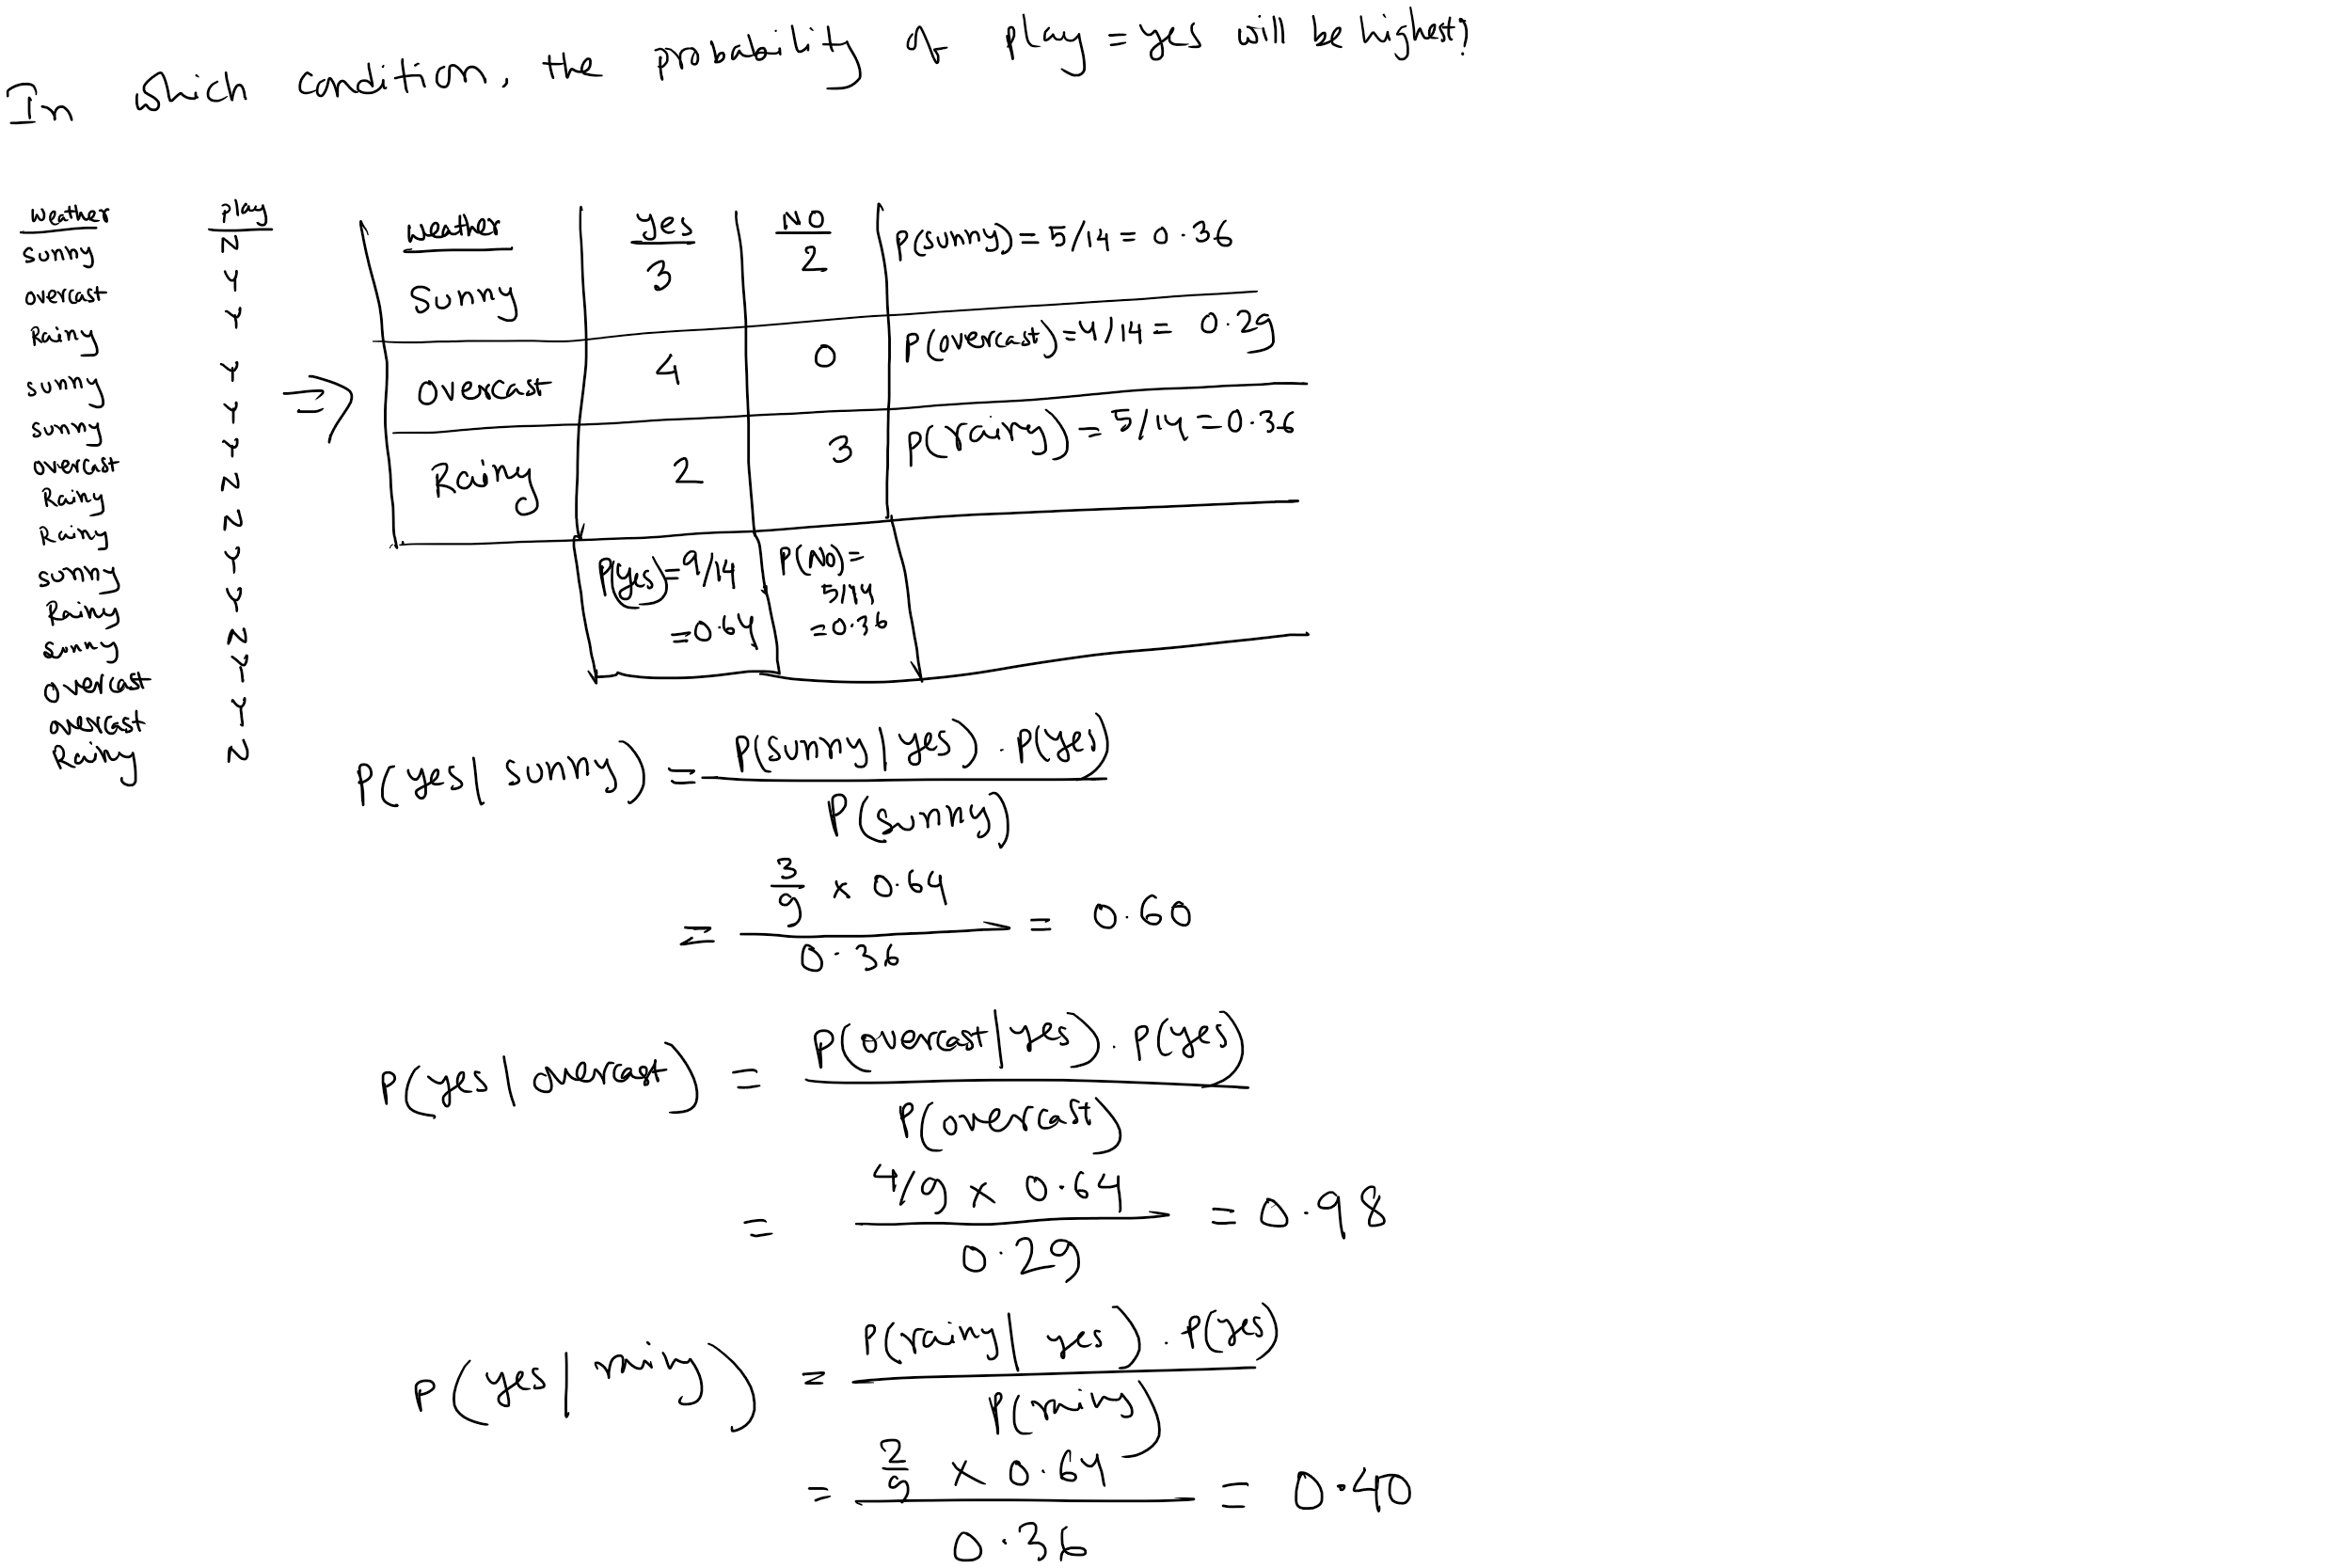 In which condition, the probability of play = yes will be highest?
weather play
sunny N
overcast Y
Rainy Y
sunny Y
sunny Y
overcast Y
Rainy N
Rainy N
sunny Y
Rainy Y
sunny N
overcast Y
overcast Y
Rainy N
⇒
weather yes NO
sunny 3 2 P(sunny) = 5/14 = 0.36
overcast 4 0 P(overcast) = 4/14 = 0.29
Rainy 2 3 P(rainy) = 5/14 = 0.36
P(yes) = 9/14
= 0.64
P(NO) =
5/14
= 0.36
P(yes | sunny) = P(sunny | yes) . P(yes)
P(sunny)
= 3/9 x 0.64 = 0.60
0.36
P(yes | overcast) = P(overcast | yes) . P(yes)
P(overcast)
= 4/9 x 0.64 = 0.98
0.29
P(yes | rainy) = P(rainy | yes) . P(yes)
P(rainy)
= 2/9 x 0.64 = 0.40
0.36